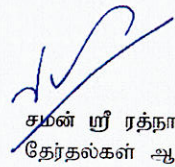 சமன் ஸ்ரீ ரத்நா
தேர்தல்கள் ஆ